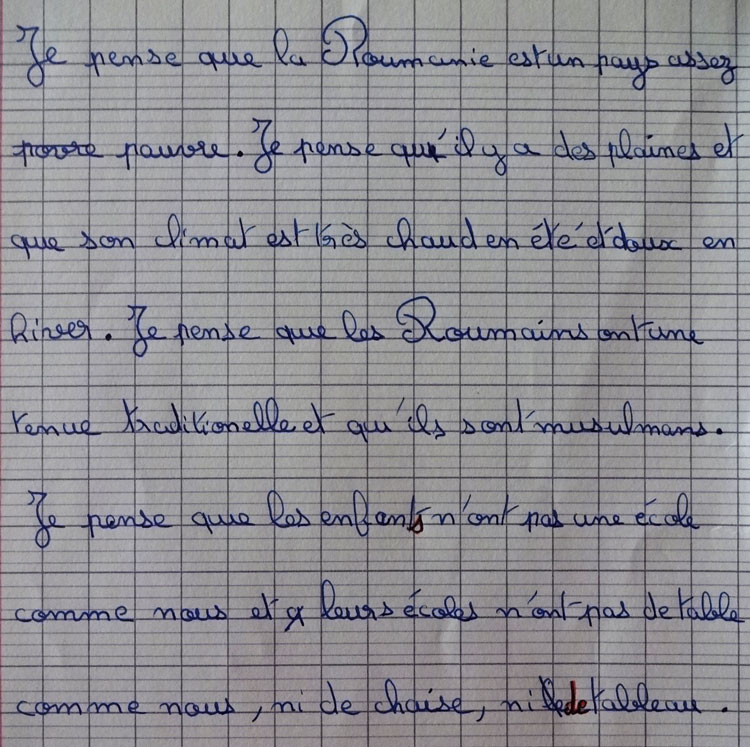 Je pense que la Roumanie est un pays assez
povre pauvre. Je pense qu'il y a des plaines et
que son climat est très chaud en été et doux en
hiver. Je pense que les Roumains ont une
tenue traditionelle et qu'ils sont musulmans.
Je pense que les enfants n'ont pas une école
comme nous et leurs écoles n'ont pas de table
comme nous, ni de chaise, ni de tableau.